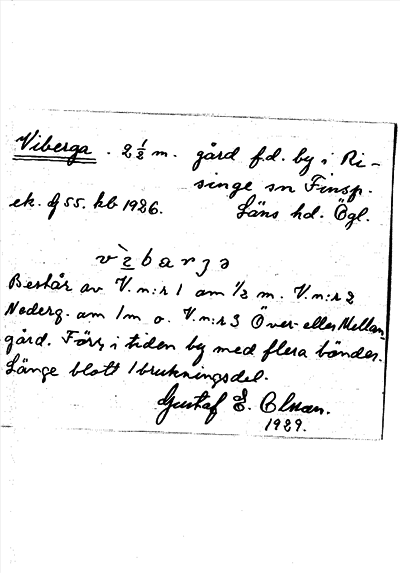 Viberga. 2 1/2 m. gård f.d. by i Ri-
singe sn Finsp.
ek. bl 55. kb 1926. Läns hd. Ögl.
vìbarʒə
Består av V. n:r 1 om 1/2 m. V. n:r 2
Nederg. om 1 m o. V. n:r 3 Över- eller Mellan-
gård. Förr i tiden by med flera bönder.
Länge blott 1 brukningsdel.
Gustaf E. Olsson.
1929.